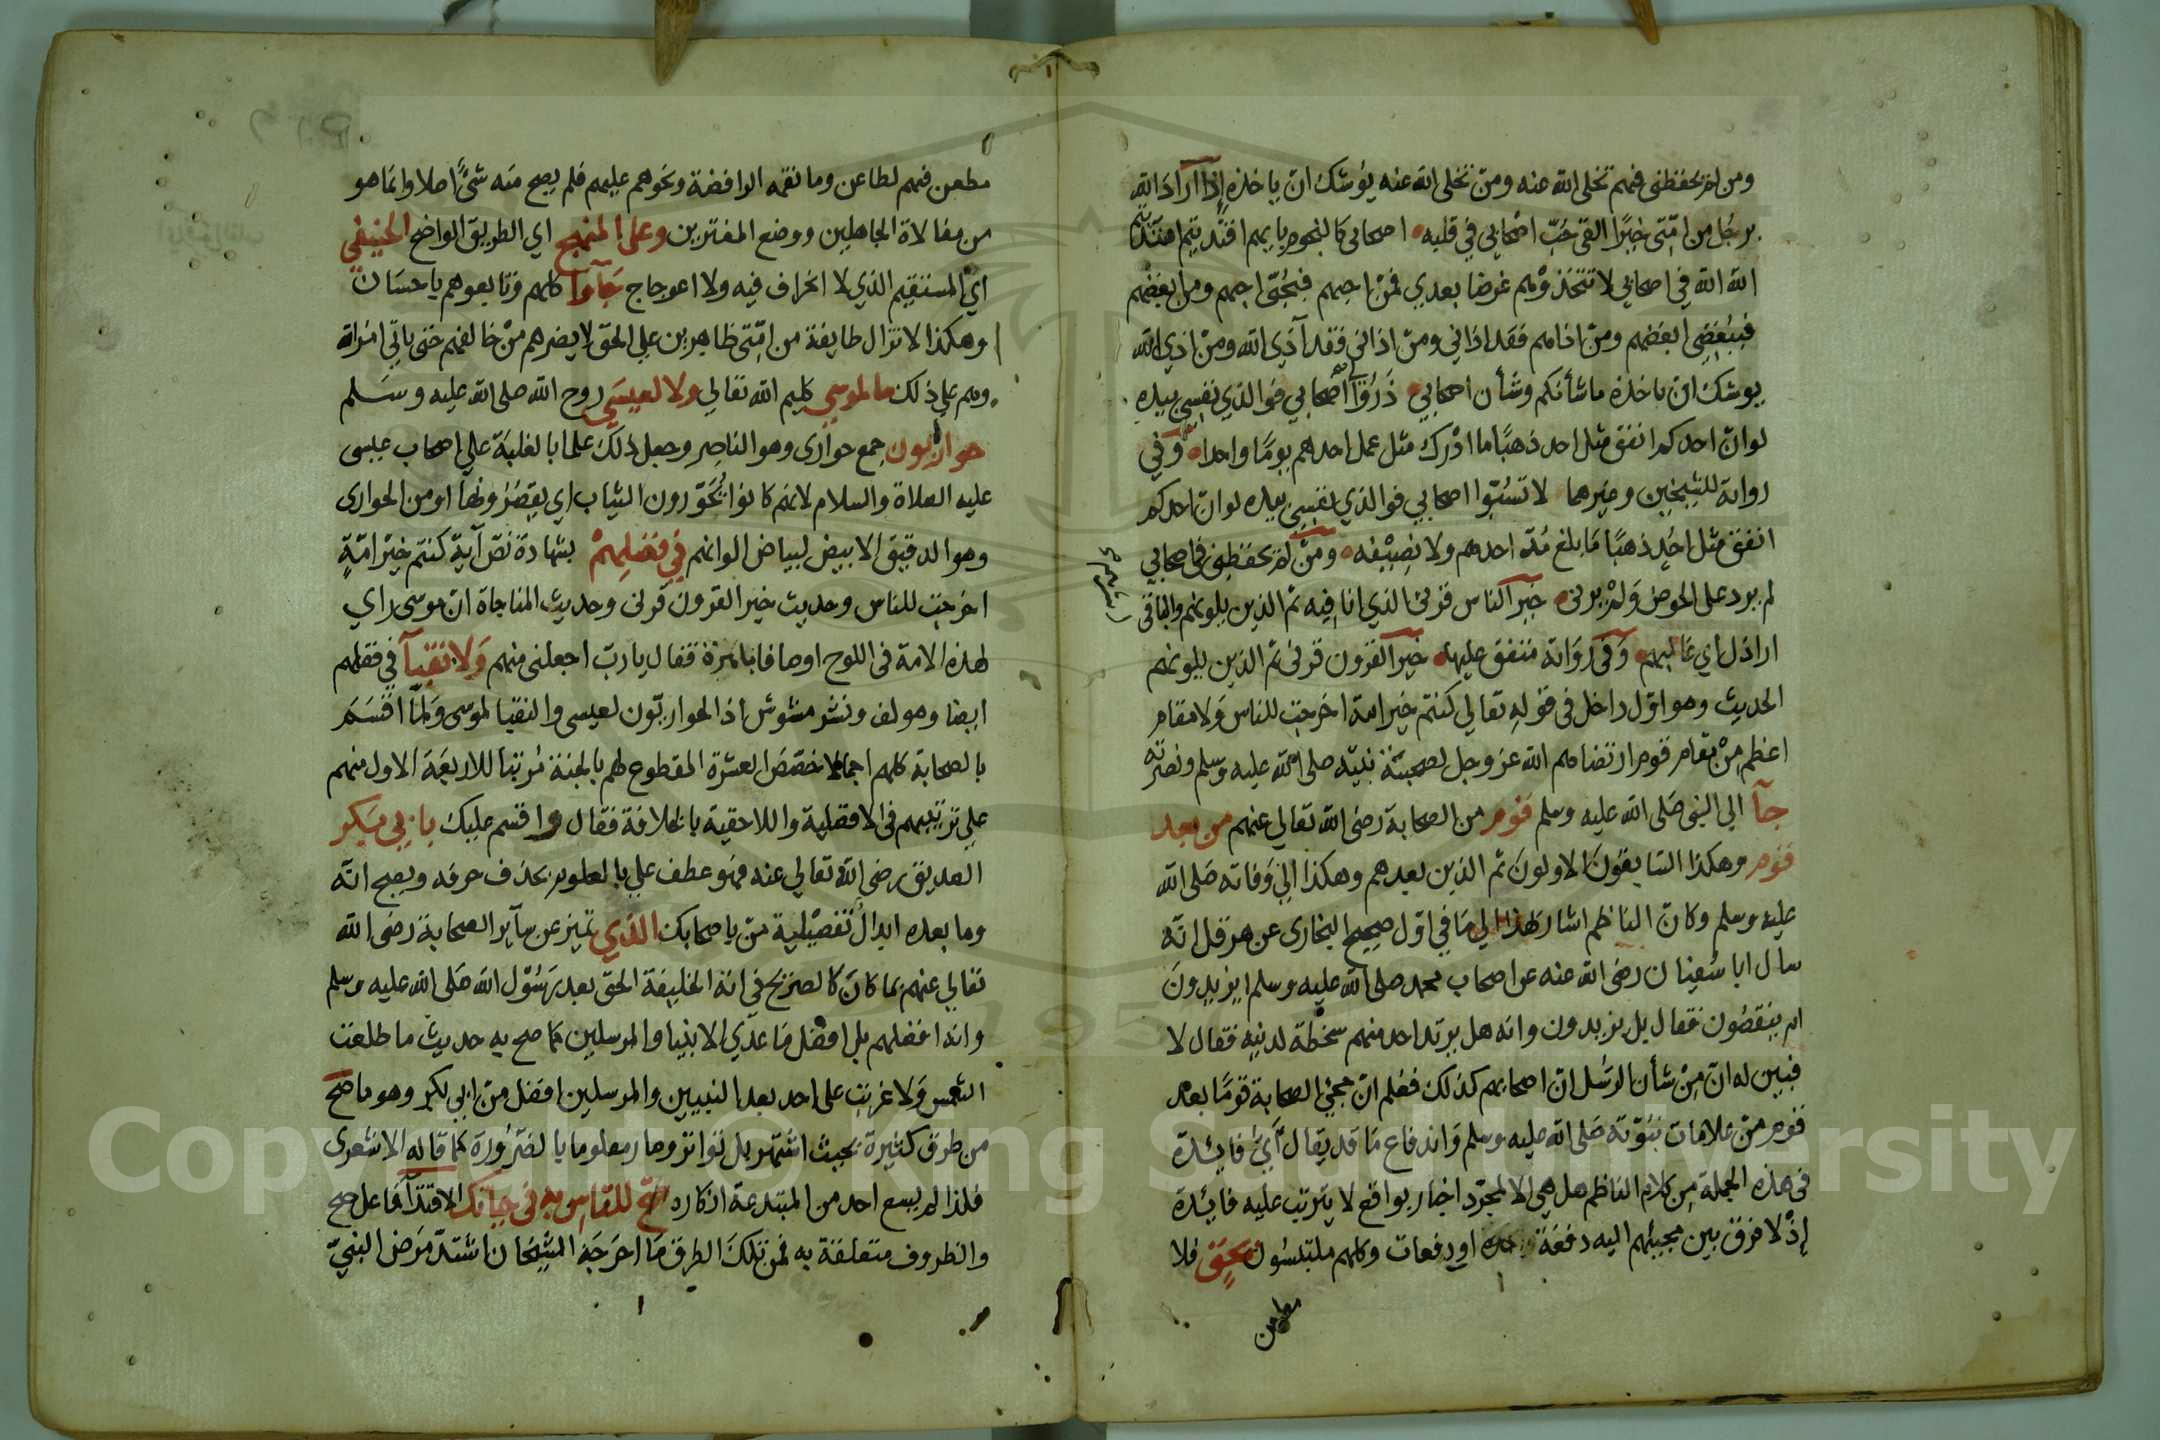 ومن لم يحفظنى فيهم تخلى الله عنه ومن تخلى الله عنه يوشك ان ياخذه اذا اراد الله
برجل من امتى خيرا القى حب اصحابي في قلبه اصحابى كالنجوم بايهم اقتديتم اهتديتم
الله الله في اصحابي لا تتخذوهم غرضا بعدي فمن احبهم فبحبي احبهم ومن ابغضهم
فببغضى ابغضهم ومن اذاهم فقد اذانى ومن اذانى فقد آذى الله ومن اذى الله
يوشك ان ياخذه ما شأنكم وشأن اصحابي ذروا اصحابي فوالذي نفسى بيده
لو ان احدكم انفق مثل احد ذهبا ما ادرك مثل عمل احدهم يوما واحدا وفي
رواية للشيخين وغيرهما لا تسبوا اصحابي فوالذي نفسى بيده لو ان احدكم
انفق مثل احد ذهبا ما بلغ مد احدهم ولا نصيفه ومن لم يحفظنى في اصحابي
لم يرد على الحوض ولم يرنى خير الناس قرنى الذي انا فيه ثم الذين يلونهم والباقى
اراذل اي غالبهم وفي رواية متفق عليها خير القرون قرنى ثم الذين يلونهم
الحديث وهو اول داخل فى قوله تعالي كنتم خير امة اخرجت للناس ولا مقام
اعظم من مقام قوم ارتضاهم الله عز وجل لصحبة نبيه صلى الله عليه وسلم ونصرته
جآ الى النبى صلى الله عليه وسلم قوم من الصحابة رضى الله تعالي عنهم من بعد
قوم وهكذا السابقون الاولون ثم الذين بعدهم وهكذا الي وفاته صلى الله
عليه وسلم وكان الناظم اشار بهذا الي ما في اول صحيح البخارى عن هرقل انه
سال ابا سفيان رضى الله عنه عن اصحاب محمد صلى الله عليه وسلم ايزيدون
ام ينقصون فقال بل يزيدون وانه هل يرتد احد منهم سخطة لدينه فقال لا
فبين له ان من شأن الرسل ان اصحابهم كذلك فعلم ان مجئ الصحابة قوما بعد
قوم من علامات نبوته صلى الله عليه وسلم واندفاع ما قد يقال اي فائدة
في هذه الجملة من كلام الناظم هل هي الا لمجرد اخبار بواقع لا يترتب عليه فائدة
إذ لا فرق بين مجيئهم اليه دفعة واحدة او دفعات وكلهم ملتبسون بحق فلا
مطعن
مطعن فيهم لطاعن وما نقمه الرافضة ونحوهم عليهم فلم يصح منه شئ اصلا وانما هو
من مغالاة الجاهلين ووضع المفترين وعلى المنهج اي الطريق الواضح الحنيفي
اي المستقيم الذي لا انحراف فيه ولا اعوجاج جآوا كلهم وتابعوهم باحسان
وهكذا لا تزال طايفة من امتى ظاهرين علي الحق لا يضرهم من خالفهم حتى ياتي امر الله
وهم علي ذلك ما لموسي كليم الله تعالي ولا لعيسى روح الله صلى الله عليه وسلم
حواريون جمع حوارى وهو الناصر وجعل ذلك علما بالغلبة علي اصحاب عيسى
عليه الصلاة والسلام لانهم كانوا يحورون الثياب اي يقصرونها او من الحوارى
وهو الدقيق الابيض لبياض الوانهم في فضلهم بشهادة نص آية كنتم خير امة
اخرجت للناس وحديث خير القرون قرنى وحديث المناجاة ان موسى راي
لهذه الامة في اللوح اوصافا باهرة فقال يا رب اجعلنى منهم ولا نقبآ في فضلهم
ايضا وهو لف ونشر مشوش اذ الحواريون لعيسى والنقبا لموسى ولما اقسم
بالصحابة كلهم اجمالا خصص العشرة المقطوع لهم بالجنة مرتبا للاربعة الاول منهم
علي ترتيبهم في الافضلية واللاحقية بالخلافة فقال واقسم عليك بابي بكر
الصديق رضى الله تعالي عنه فهو عطف علي بالعلوم بحذف حرفه ويصح انه
وما بعده ابدال تفصيلية من باصحابك الذي تميز عن سآير الصحابة رضى الله
تعالي عنهم بما كان كالصريح في انه الخليفة الحق بعد رسول الله صلى الله عليه وسلم
وانه افضلهم بل افضل ما عدي الانبيا والمرسلين كما صح به حديث ما طلعت
الشمس ولا غربت على احد بعد النبيين والمرسلين افضل من ابي بكر وهو ما صح
من طرق كثيرة بحيث اشتهر بل تواتر وصار معلوما بالضرورة كما قاله الاشعرى
فلذا لم يسع احد من المبتدعة انكاره صح للناس به في حياتك الاقتدآ فاعل صح
والظروف متعلقة به فمن تلك الطرق ما اخرجه الشيخان اشتد مرض النبي